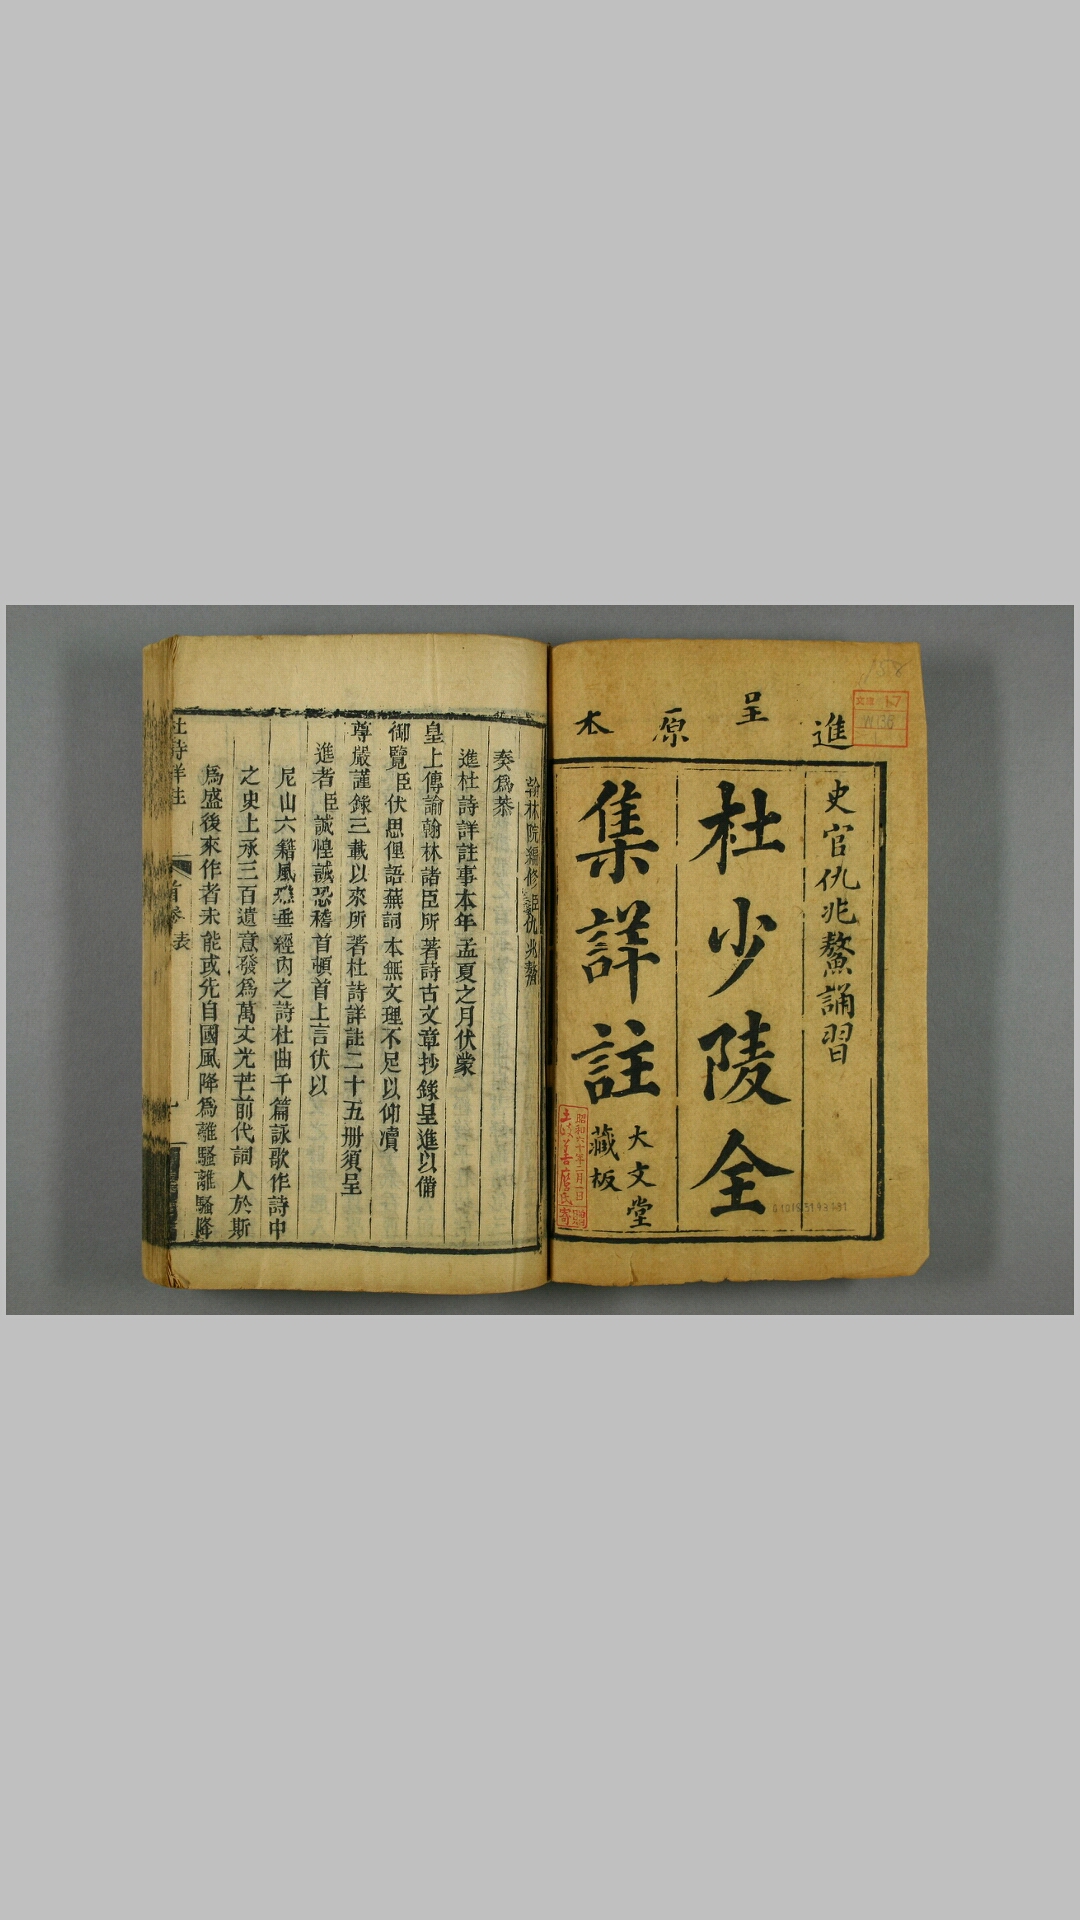 進呈原本
史官仇兆鰲誦習
杜少陵全
集詳註
大文堂
藏板
昭和六十年二月一日
翰林院編修臣仇兆鰲
奏為恭
進杜詩詳註事本年孟夏之月伏蒙
皇上傳諭翰林諸臣所著詩古文章抄錄呈進以備
御覽臣伏思俚語蕪詞本無文理不足以仰瀆
尊嚴謹錄三載以來所著杜詩詳註二十五册須呈
進者臣誠惶誠恐稽首頓首上言伏以
尼山六籍風雅垂經內之詩杜曲千篇詠歌作詩中
之史上承三百遺意發為萬丈光芒前代詞人於斯
為盛後來作者未能或先自國風降為離騷離騷降
杜詩詳註
首卷 表